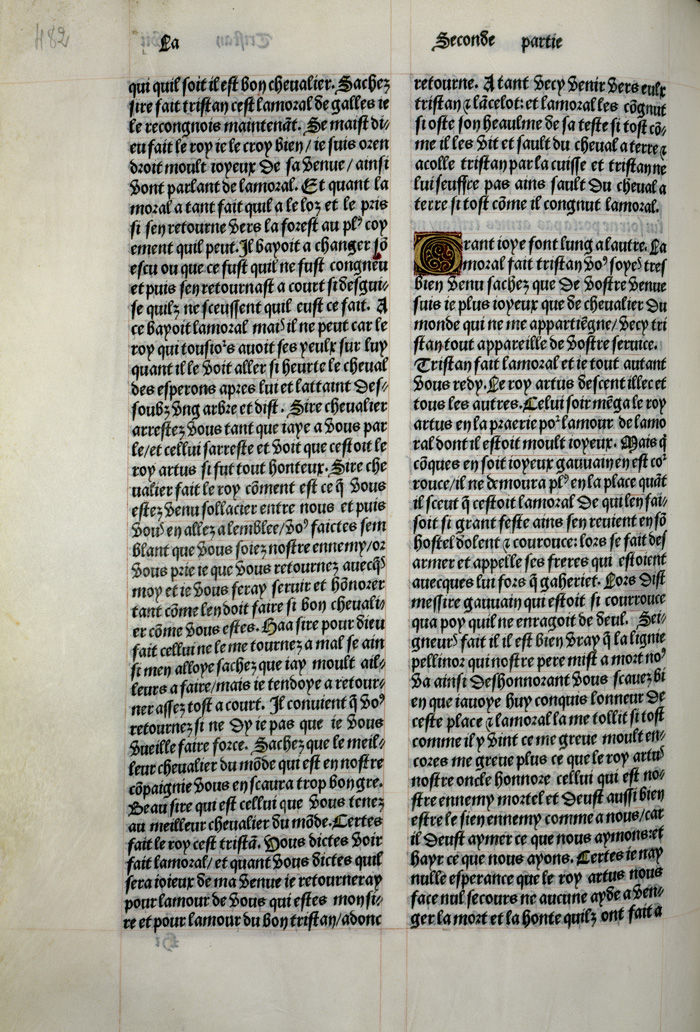 482
La
Seconde partie
qui quil soit il est bon chevalier. Sachez
sire fait tristan cest lamoral de galles ie
le recongnois maintenāt. Se maist di⸗
eu fait le roy ie le croy bien/ie suis oren
droit moult ioyeux De sa Venue/ainsi
Vont parlant de lamoral. Et quant la
moral a tant fait quil a le loz et le pris
si sen retourne Vers la forest au plꝰ coy
ement quil peut. Il bayoit a changer sō
escu ou que ce fust quil ne fust congneu
et puis sen retournast a court si desgui⸗
se quilz ne sceussent quil eust ce fait. A
ce bayoit lamoral mais il ne peut car le
roy qui tousioᵘrs avoit ses yeulx sur luy
quant il le Voit aller si heurte le cheval
des esperons apres lui et lattaint Des⸗
soubz Vng arbre et dist. Sire chevalier
arrestez Vous tant que iaye a Vous par
le/et cellui sarreste et Voit que cestoit le
roy artus si fut tout honteux. Sire che
ualier fait le roy cōment est ce q̄ Vous
estez Venu sollacier entre nous et puis
Vous en allez a lemblee/Voꝰ faictes sem
blant que Vous soiez nostre ennemy/or
Vous prie ie que Vous retournez auecqs
moy et ie Vous feray seruir et hōnorer
tant cōme len doit faire si bon chevali⸗
er cōme Vous estes. Haa sire pour dieu
fait cellui ne le me tournez a mal se ain
si men alloye sachez que iay moult ail⸗
leurs a faire/mais ie tendoye a retour⸗
ner assez tost a court. Il conuient q̄ Voꝰ
retournez si ne Dy ie pas que ie Vous
Vueille faire force. Sachez que le meil⸗
leur chevalier du mōde qui est en nostre
cōpaignie Vous en scaura trop bon gre.
Beau sire qui est cellui que Vous tenez
au meilleur chevalier du mōde. Certes
fait le roy cest tristā. Vous dictes Voir
fait lamoral/et quant Vous dictes quil
sera ioieux de ma Venue ie retourneray
pour lamour de Vous qui estes monsi⸗
re et pour lamour du bon tristan/adonc
retourne. Atant Vecy Venir Vers eulx
tristan ⁊ lācelot: et lamoral les cōgnut
si oste son heaulme de sa teste si tost cō⸗
me il les Vit et sault du cheval a terre ⁊
acolle tristan par la cuisse et tristan ne
lui seuffre pas ains sault Du cheval a
terre si tost cōme il congnut lamoral.
Grant ioye font lung a lautre. La
moral fait tristan Voꝰ soyez tres
bien Venu sachez que De Vostre Venue
suis ie plus ioyeux que de chevalier Du
monde qui ne me appartiēgne/Vecy tri
stan tout appareille de Vostre seruice.
Tristan fait lamoral et ie tout autant
Vous redy. Le roy artus descent illec et
tous les autres. Celui soir mēga le roy
artus en la praerie poᵘr lamour de lamo
ral dont il estoit moult ioyeux. Mais q̄
cōques en soit ioyeux gauuain en est coᵘr
rouce/il ne demoura plꝰ en la place quāt
il sceut q̄ cestoit lamoral De qui len fai⸗
soit si grant feste ains sen reuient en sō
hostel dolent ⁊ courouce: lors se fait des
armer et appelle ses freres qui estoient
auecques lui fors q̄ gaheriet. Lors Dist
messire gauuain qui estoit si courrouce
qua poy quil ne enragoit de deul. Sei⸗
gneurs fait il il est bien Vray q̄ la lignie
pellinor qui nostre pere mist a mort noꝰ
Va ainsi Deshonnorant Vous scauez bi
en que iauoye huy conquis lonneur De
ceste place ⁊ lamoral la me tollit si tost
comme il y Vint ce me greue moult en⸗
cores me greue plus ce que le roy artus
nostre oncle honnore cellui qui est no⸗
stre ennemy mortel et Deust aussi bien
estre le sien ennemy comme a nous/car
il Deust aymer ce que nous aymons: et
hayr ce que nous ayons. Certes ie nay
nulle esperance que le roy artus nous
face nul secours ne aucune ayde a Ven⸗
ger la mort et la honte quilz ont fait a